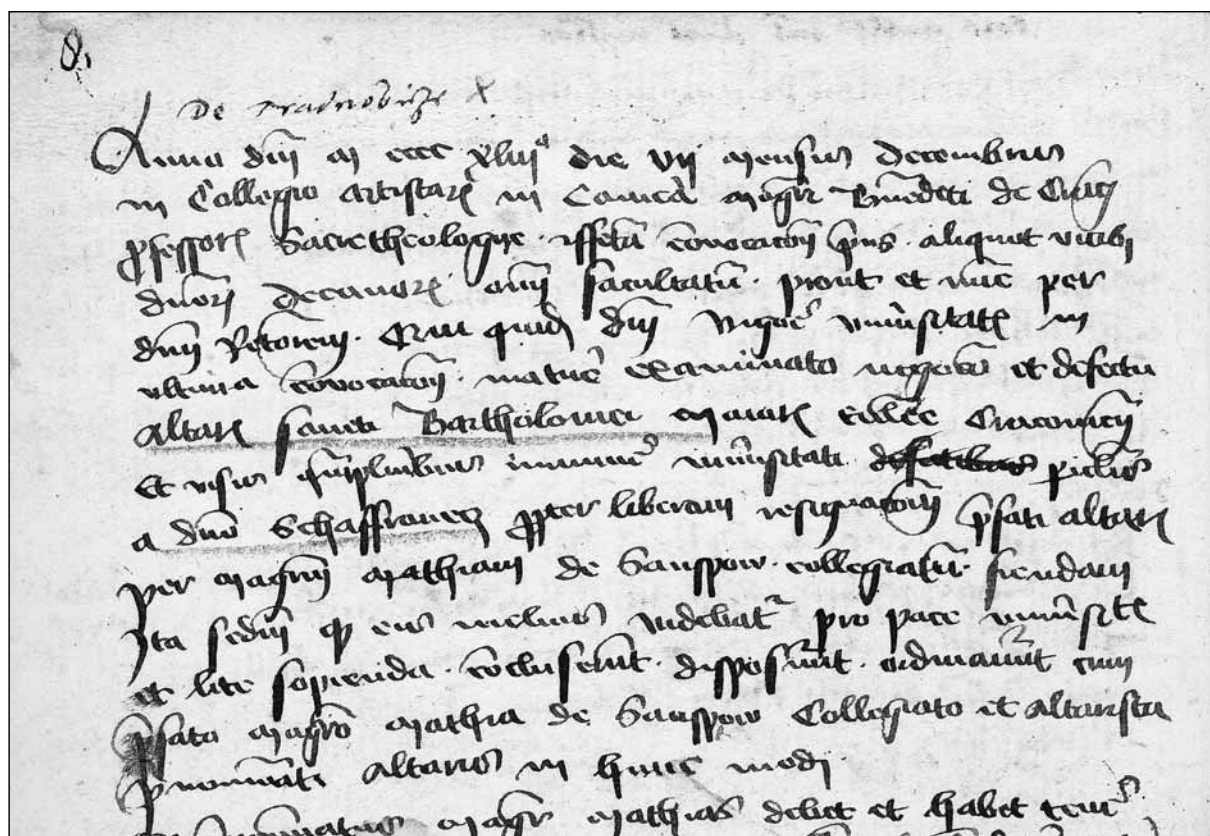 8.
De Pradnobicze X
Anno dni M cccc xliiiº die vij mensis decembris
in Collegio Artistarum in Comoda Magri Benedicti de
pfessoris Sacre theologie convocacoi pus aliquot vicibus
dnorum decanorum omni facultatum prout et nunc per
dnm Rectorem Qui quidem dni vigore univsitatis in
ultima convocacoi mature examinato negocio et defectu
Altaris sancti Bartholomei Maioris ecclesie Cracoviensis
Et visis univsitati periculis
a dno Schaffraniecz propter liberam resignacoem pfati altaris
per Magrum Mathiam de Sanspow collegiatum fiendam
Ita sedm qd eis melius videbatur pro pace univsitatis
et lite sopienda concluserunt disposuerunt ordinaverunt cum
pfato Magro Mathia de Sanspow Collegiato et Altarista
pnominati altaris in hunc modum
Magr Mathias debet et habet